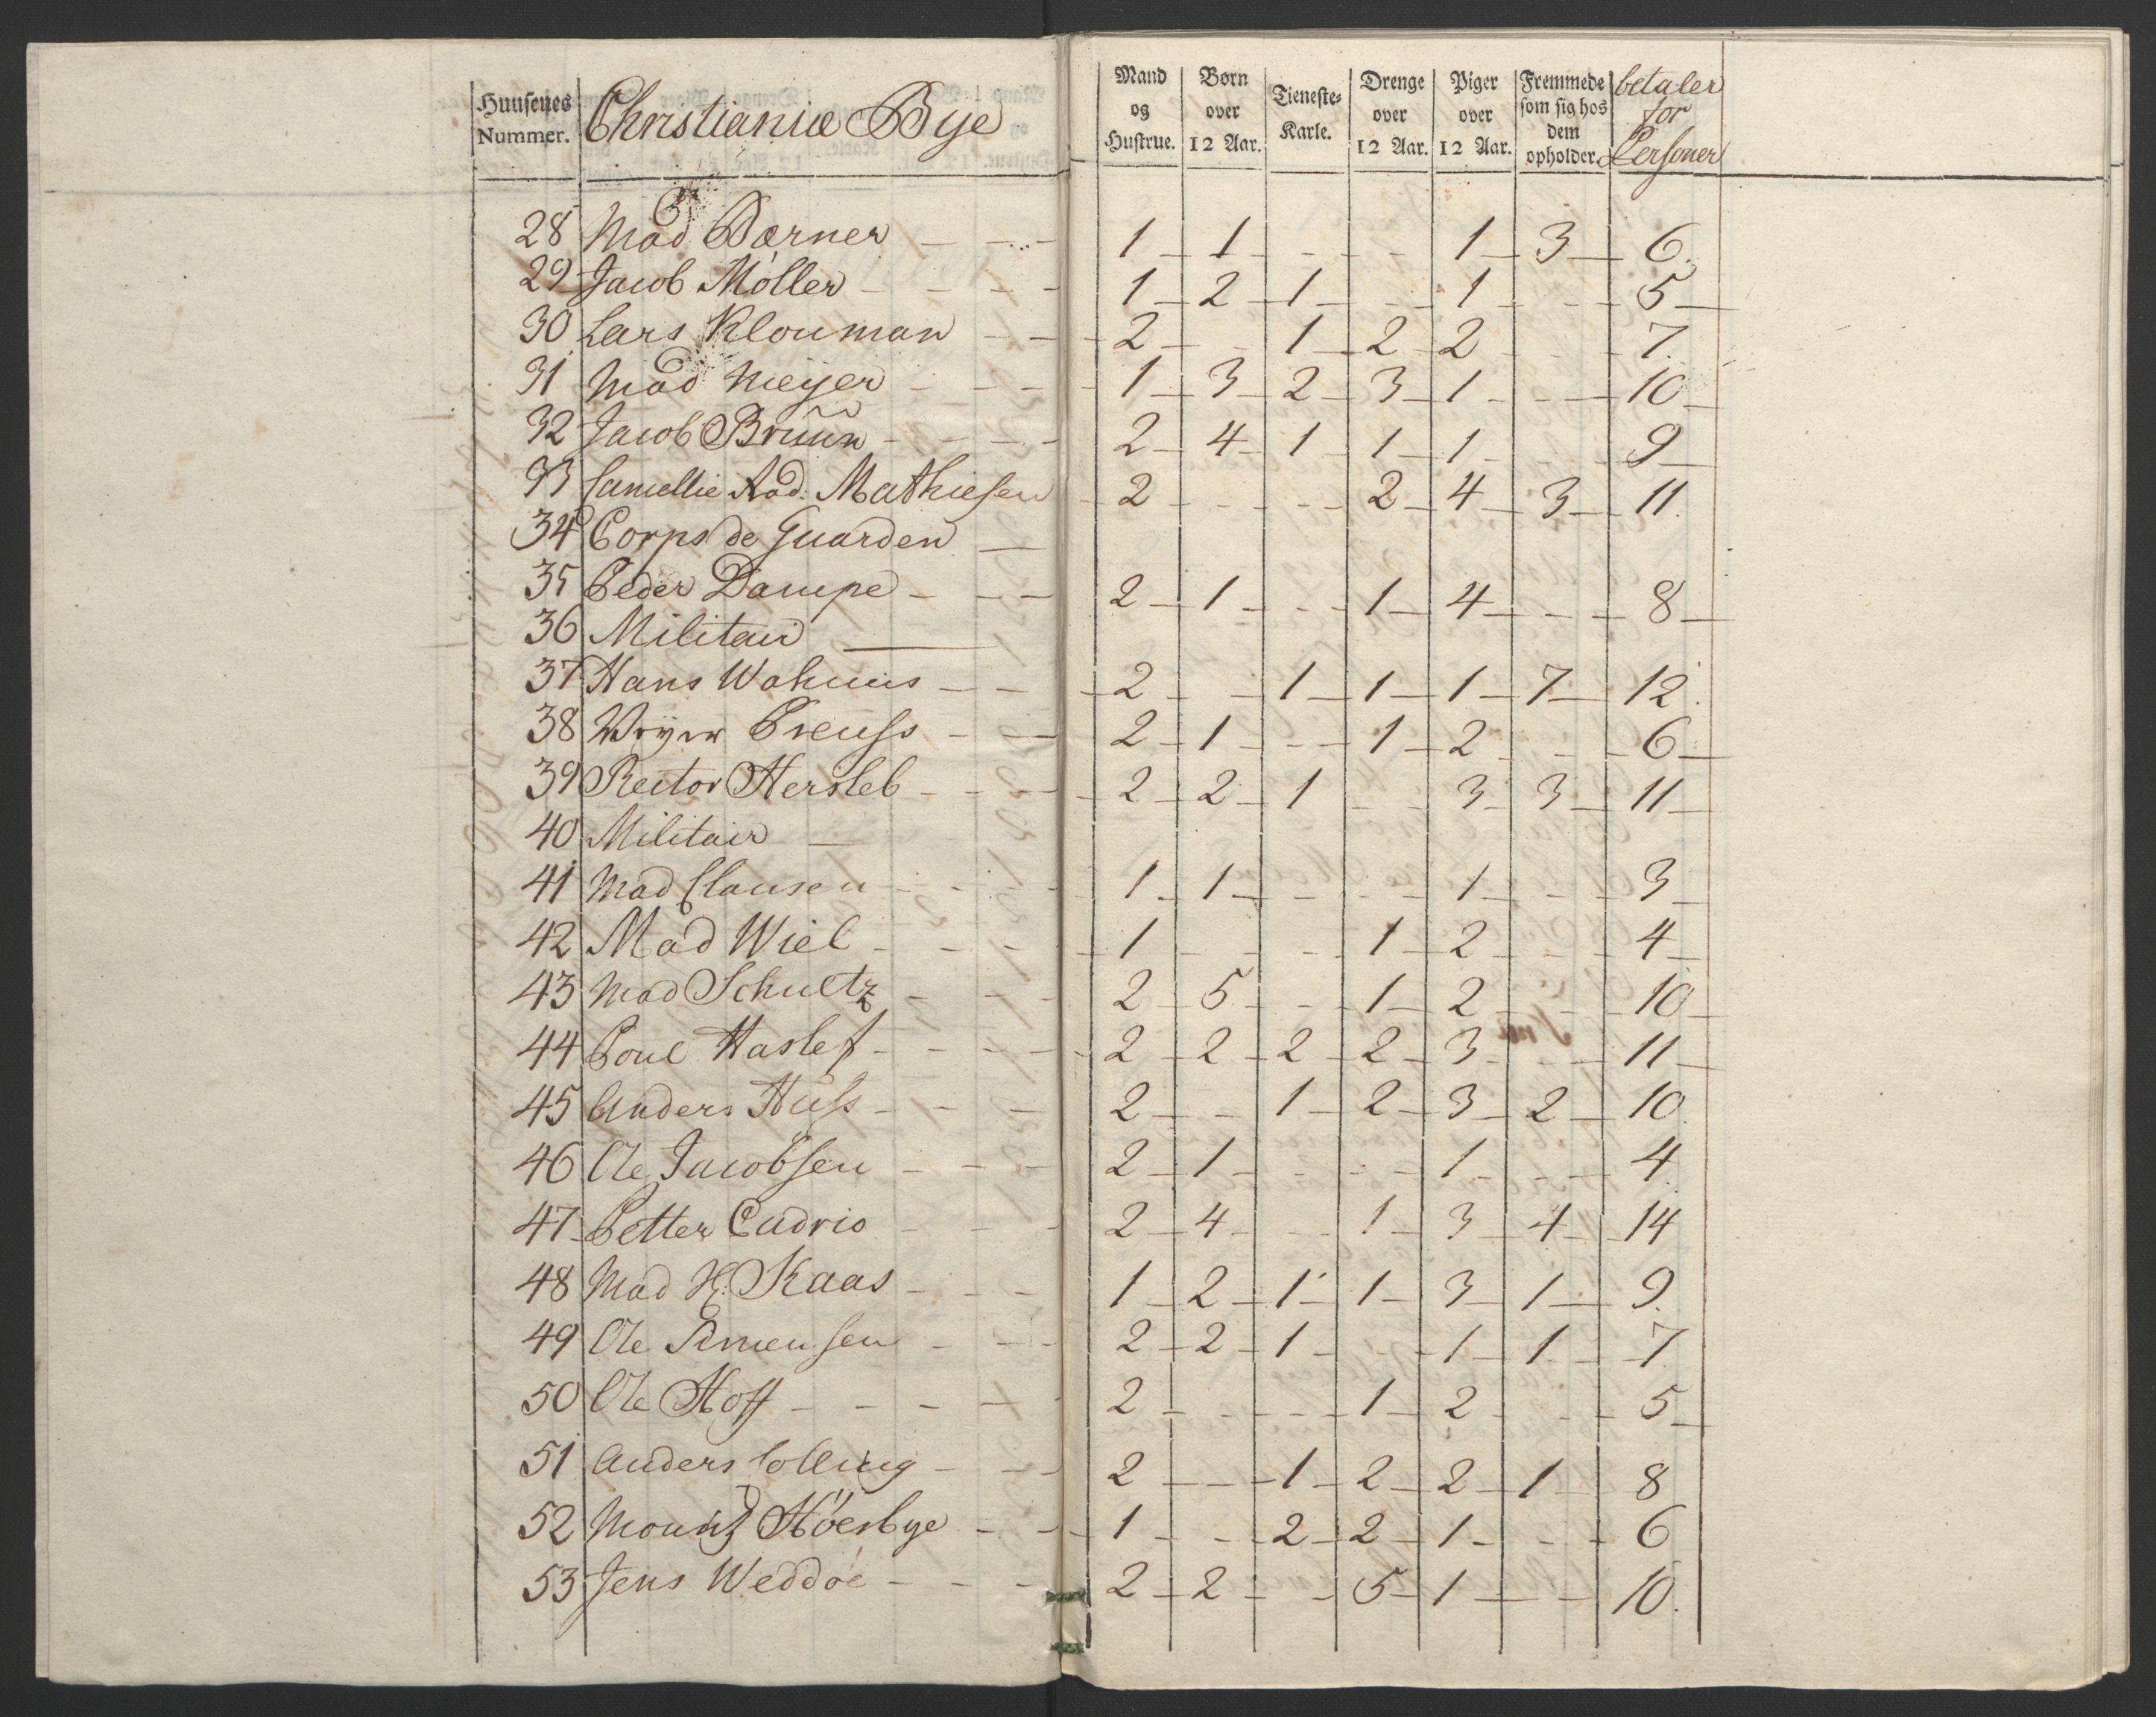 Huusenes Nummer. Christianiæ Bye Mand og Hustrue. Børn over 12 Aar. Tieneste-Karle. Drenge over 12 Aar. Piger over 12 Aar. Fremmede som sig hos dem opholder. betaler for Personer
28 Mad Börner 1 1 1 3 6.
29 Jacob Möller 1 2 1 1 5
30 Lars Klouman 2 1 2 2 7.
31 Mad Meyer 1 3 2 3 1 10
32 Jacob Bruun 2 4 1 1 1 9
33 Cancellie Raad: Mathiesen 2 2 4 3 11.
34 Corps de Guarden
35 Peder Dampe 2 1 1 4 8
36 Militair
37 Hans 2 1 1 1 7 12.
38 Preuss 2 1 1 2 6
39 Rector Hersleb 2 2 1 3 3 11
40 Militair
41 Mad Clausen 1 1 1 3
42 Mad Wiel 1 1 2 4
43 Mad Schultz 2 5 1 2 10
44 Poul Haslef 2 2 2 2 3 11
45 Anders Huss 2 1 2 3 2 10.
46 Ole Jacobsen 2 1 1 4.
47 Petter Cudrio 2 4 1 3 4 14
48 Mad H: Kaas 1 2 1 1 3 1 9.
49 Ole Simensen 2 2 1 1 1 7
50 Ole Hoff 2 1 2 5
51 Anders Colling 2 1 2 2 1 8
52 Mouritz Höesbye 1 2 2 1 6
53 Jens Weddöe 2 2 5 1 10.